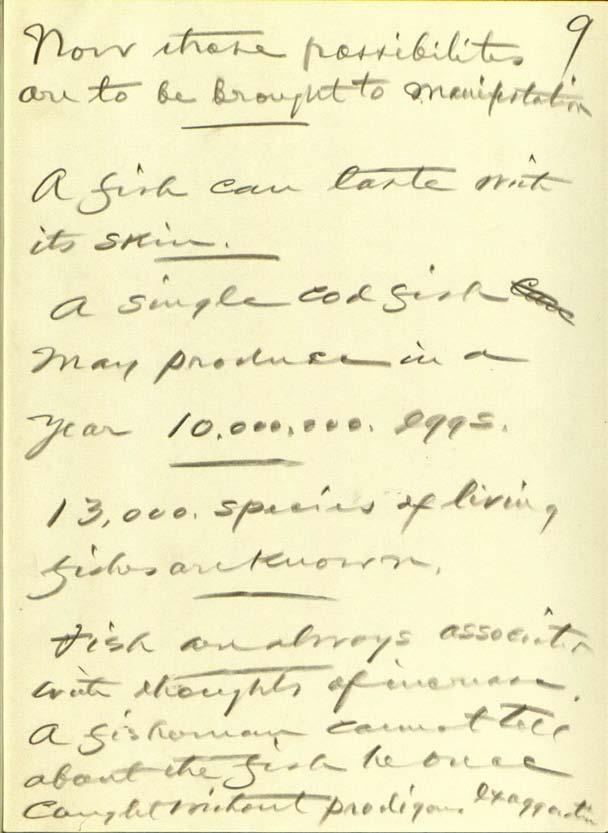 9
Now these possibilites
are to be brought to manifestation
A fish can taste with
its skin.
A single cod fish
may produce in a
year 10,000,000. eggs.
13,000. species of living
fishes are known.
Fish are always associated
with thoughts of increase.
A fisherman cannot tell
about the fish he once
caught without prodigous exaggeration